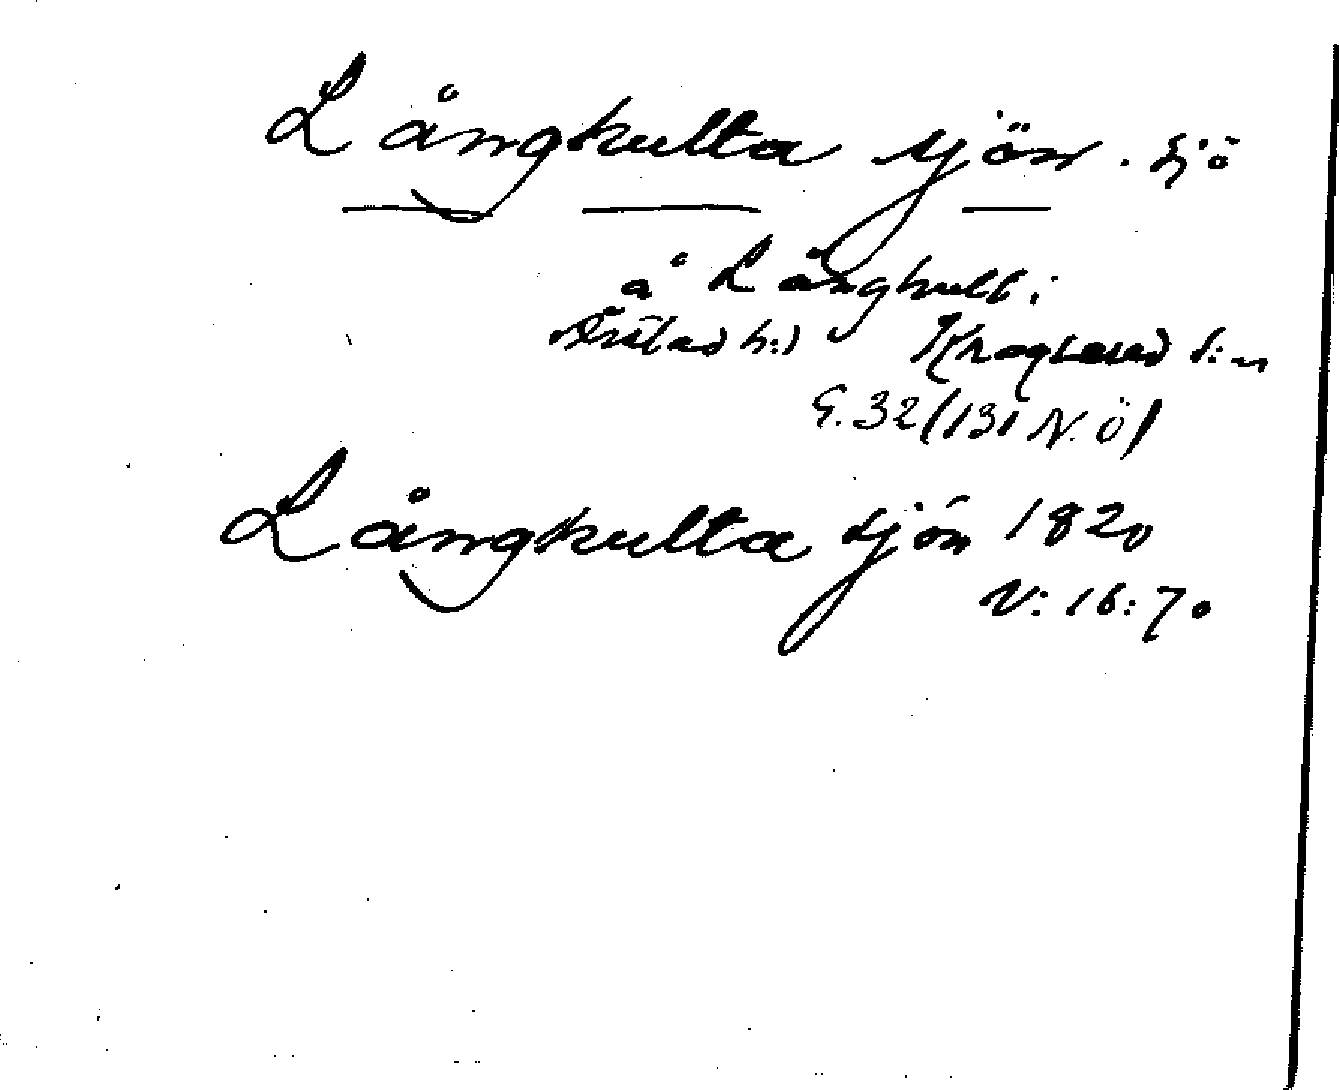 Långhulta sjön. sjö
å Långhult i
Årstad h:d Krogsered s:n
G. 32 (131 N. Ö)
Långhulta sjön 1820
V: 16: 70